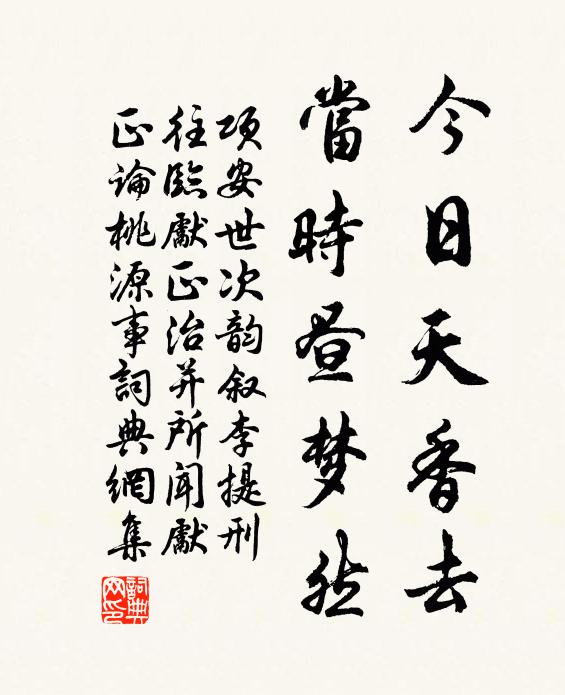 今日天香去
當時昼梦然
项安世次韵叙李提刑
往临獻正治并所闻獻
正論桃源事詞典網集
詞典網印